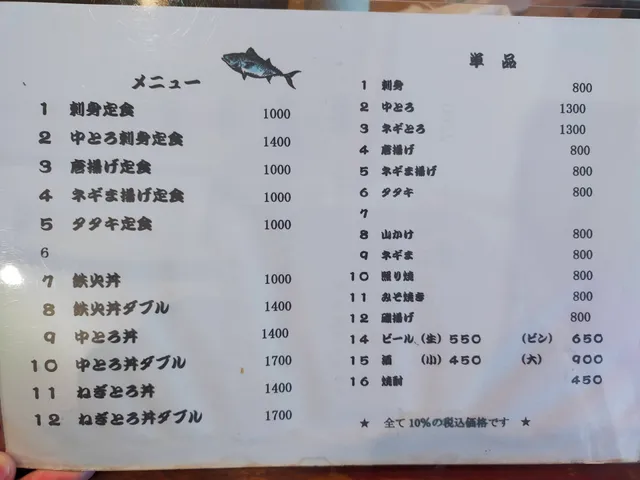 メニュー
1 刺身定食 1000
2 中とろ刺身定食 1400
3 唐揚げ定食 1000
4 ネギま揚げ定食 1000
5 タタキ定食 1000
6
7 鉄火丼 1000
8 鉄火丼ダブル 1400
9 中とろ丼 1400
10 中とろ丼ダブル 1700
11 ねぎとろ丼 1400
12 ねぎとろ丼ダブル 1700
単品
1 刺身 800
2 中とろ 1300
3 ネギとろ 1300
4 唐揚げ 800
5 ネギま揚げ 800
6 タタキ 800
7
8 山かけ 800
9 ネギま 800
10 照り焼 800
11 みそ焼き 800
12 磯揚げ 800
14 ビール (生) 550 (ビン) 650
15 酒 (小) 450 (大) 900
16 焼酎 450
★ 全て10%の税込価格です ★